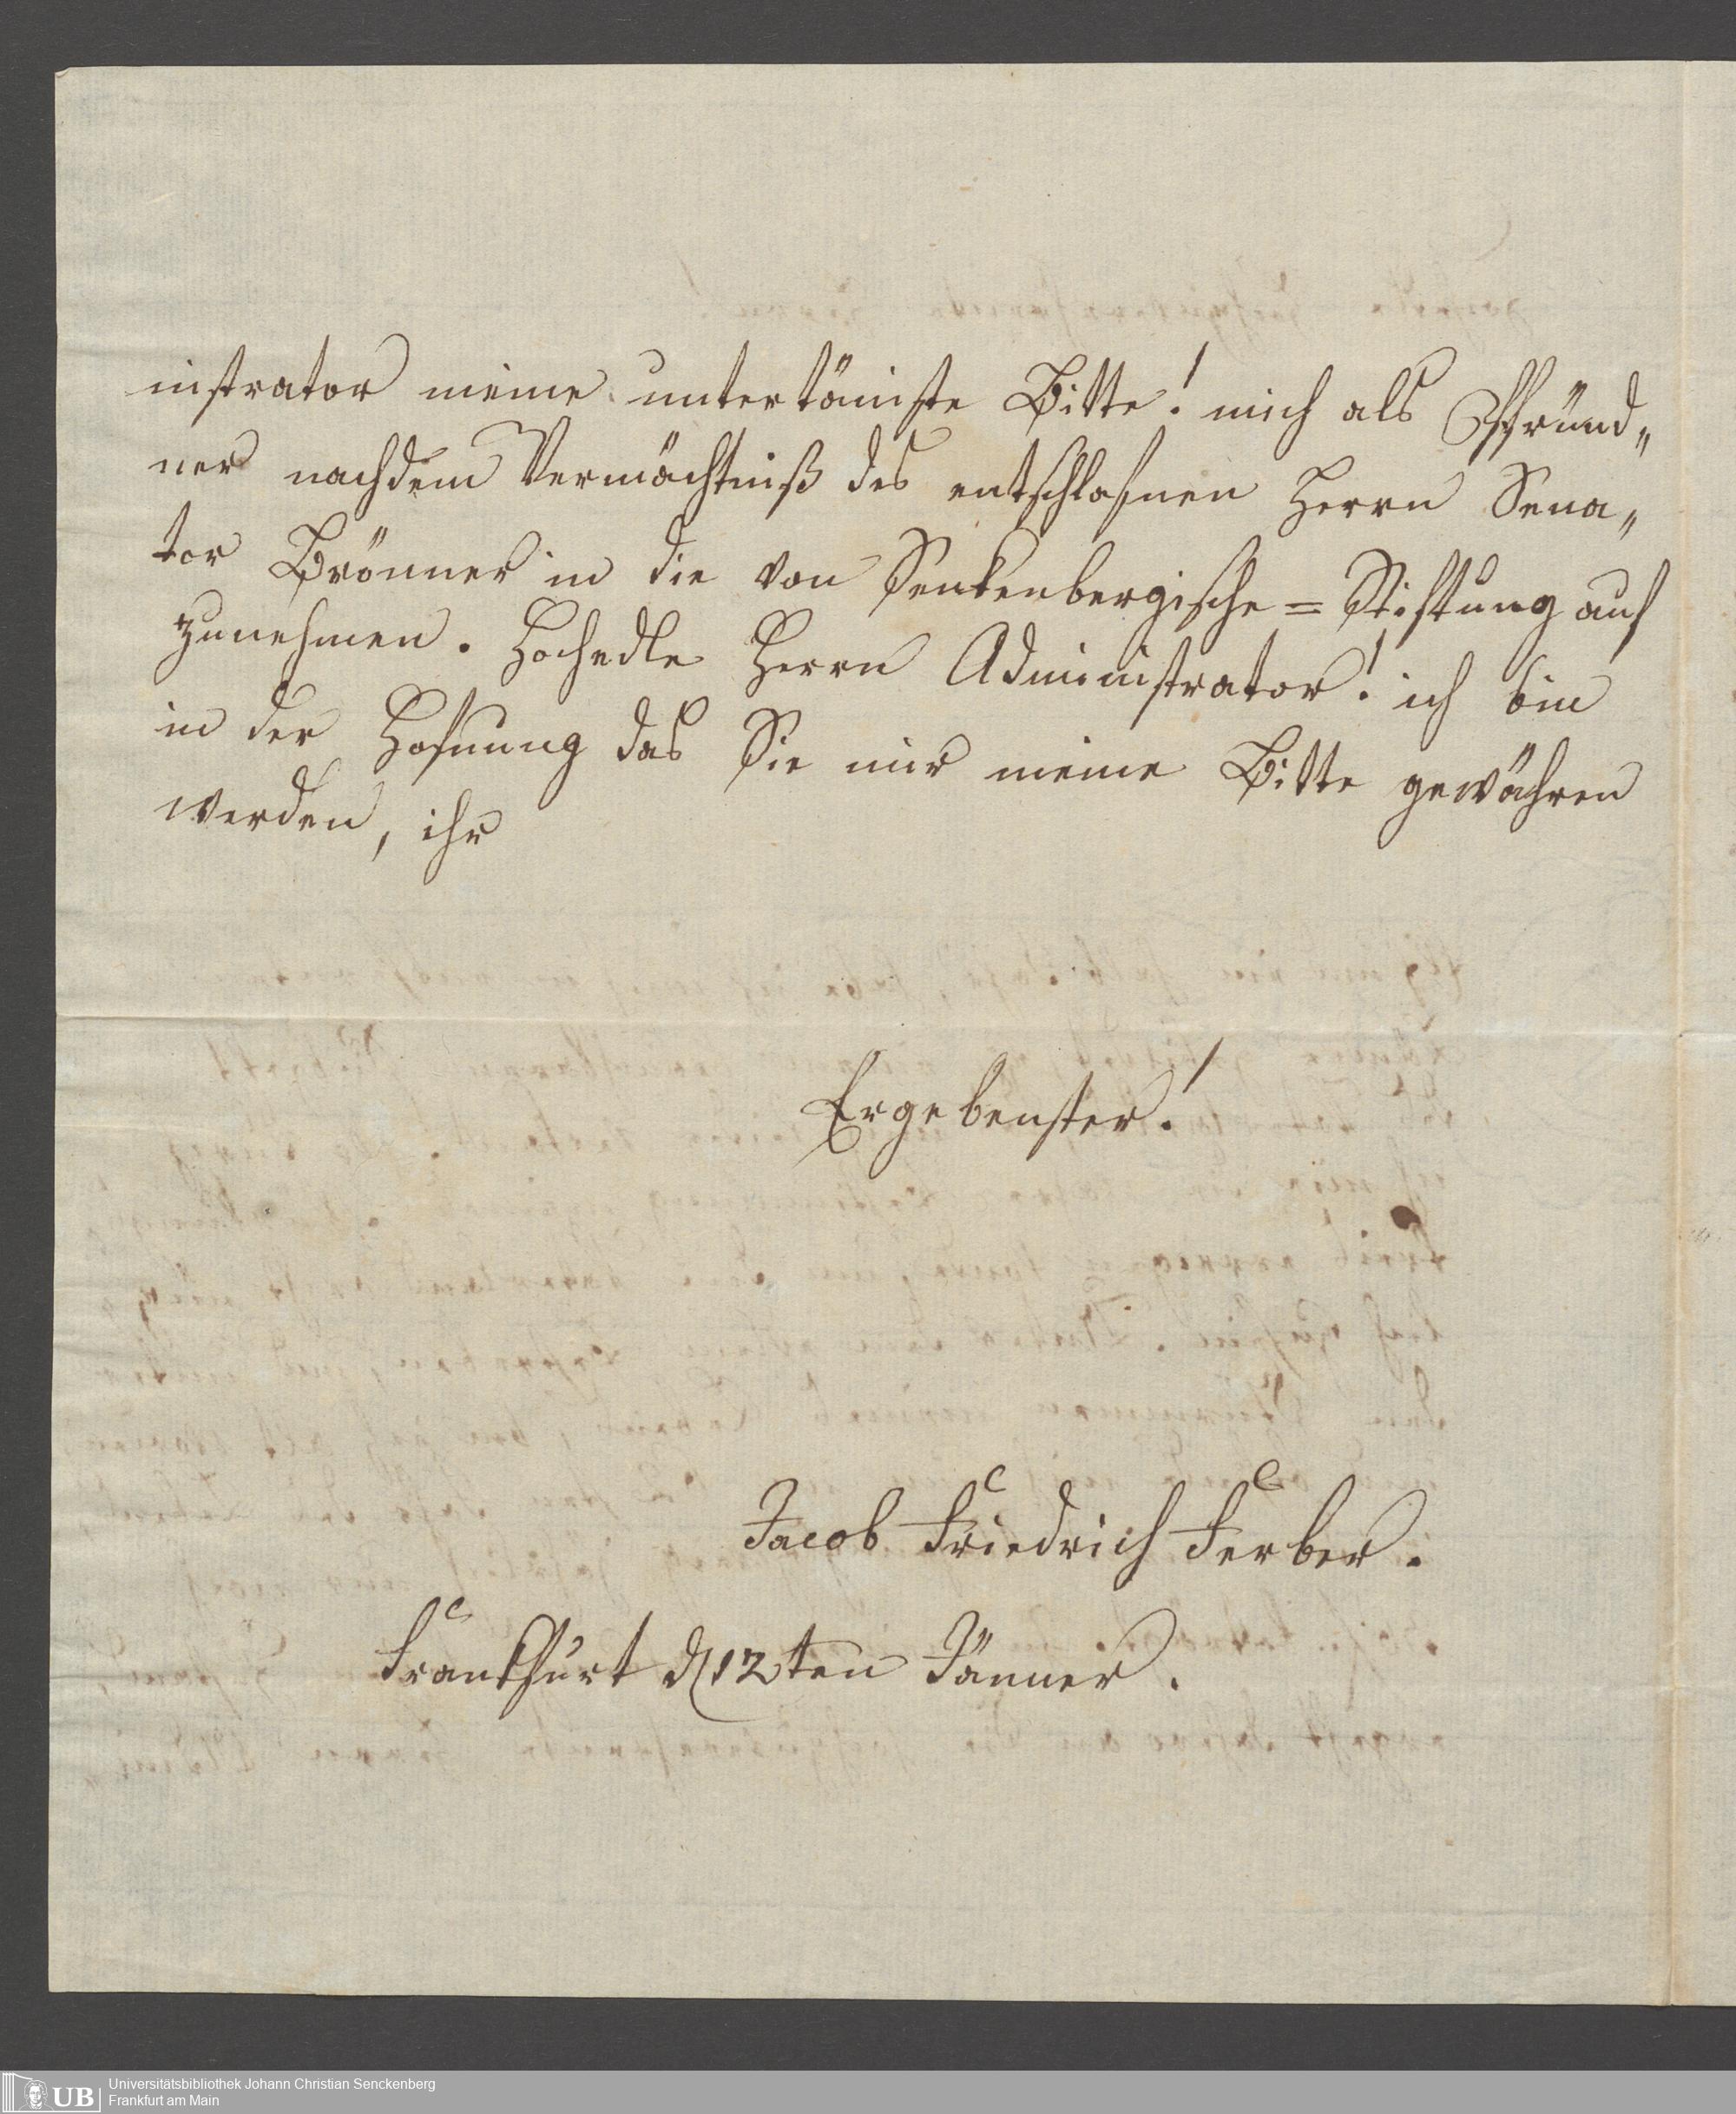 instrator meine untertäniste Bitte! mich als Pfründ„
ner nachdem Vermächtniß des entschlafnen Herrn Sena„
tor Brönner in die von Senkenbergische=Stiftung auf
zunehmen. Hochedle Herrn Administrator! ich bin
in der Hofnung das Sie mir meine Bitte gewähren
werden, ihr
Ergebenster!
Jacob Friedrich Ferber.
Frankfurt d 12ten Jänner.
UB
Universitätsbibliothek Johann Christian Senckenberg
Frankfurt am Main